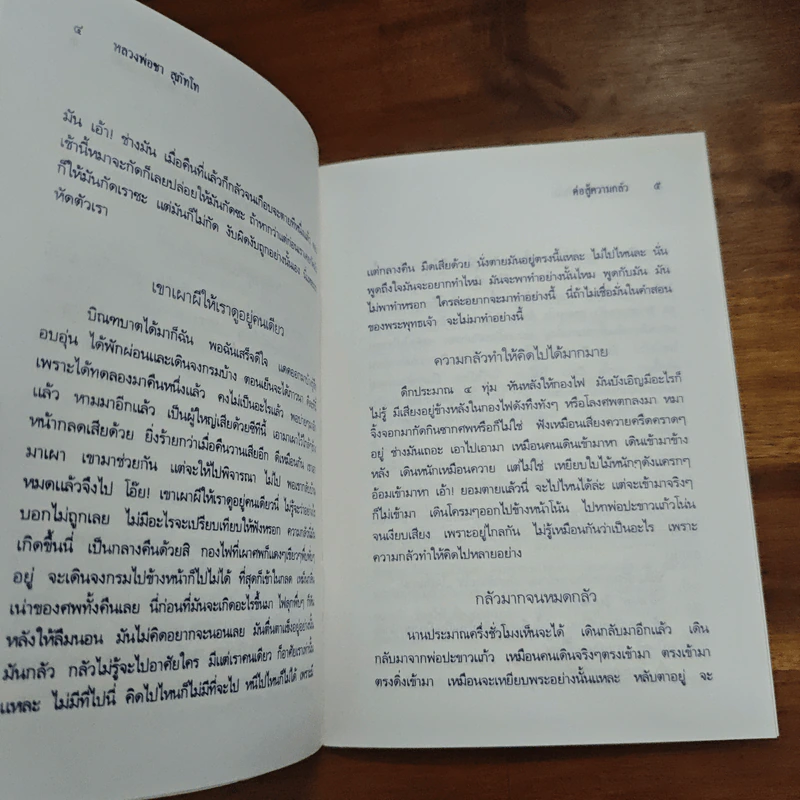 ๔ หลวงพ่อชา สุภัทโท
มัน เอ้า! ช่างมัน เมื่อคืนที่แล้วก็กลัวจนเกือบจะตายทีหนึ่งแล้ว
เช้านี้หมาจะกัดก็เลยปล่อยให้มันกัดซะ ถ้าหากว่าแต่ก่อน
ก็ให้มันกัดเราซะ แต่มันก็ไม่กัด งับผิดงับถูกอย่างนั้นเอง
หัดตัวเรา
เขาเผาผีให้เราดูอยู่คนเดียว
บิณฑบาตได้มาก็ฉัน พอฉันเสร็จดีใจ แดดออกมา
อบอุ่น ได้พักผ่อนและเดินจงกรมบ้าง ตอนเย็นจะได้ภาวนา
เพราะได้ทดลองมาคืนหนึ่งแล้ว คงไม่เป็นอะไรแล้ว พอบ่าย
แล้ว หามมาอีกแล้ว เป็นผู้ใหญ่เสียด้วยซีทีนี้ เอามาเผาไว้ใกล้ๆ
หน้ากลดเสียด้วย ยิ่งร้ายกว่าเมื่อคืนวานเสียอีก ดีเหมือนกัน
มาเผา เขามาช่วยกัน แต่จะให้ไปพิจารณา ไม่ไป พอเขากลับ
หมดแล้วจึงไป โอ๊ย! เขาเผาผีให้เราดูอยู่คนเดียวนี่ ไม่รู้จะว่าอย่างไร
บอกไม่ถูกเลย ไม่มีอะไรจะเปรียบเทียบให้ฟังหรอก ความกลัวที่มัน
เกิดขึ้นนี่ เป็นกลางคืนด้วยสิ กองไฟที่เผาศพก็แดงๆเขียวๆพึบพับๆ
อยู่ จะเดินจงกรมไปข้างหน้าก็ไปไม่ได้ ที่สุดก็เข้าในกลด เหม็นกลิ่น
เน่าของศพทั้งคืนเลย นี่ก่อนที่มันจะเกิดอะไรขึ้นมา ไฟลุกพึบๆ ก็หัน
หลังให้ลืมนอน มันไม่คิดอยากจะนอนเลย มันตื่นตาแข็งอยู่อย่างนั้น
มันกลัว กลัวไม่รู้จะไปอาศัยใคร มีแต่เราคนเดียว ก็อาศัยเราเท่านั้น
แหละ ไม่มีที่ไปนี่ คิดไปไหนก็ไม่มีที่จะไป หนีไปไหนก็ไม่ได้ เพราะมี
ต่อสู้ความกลัว ๕
แต่กลางคืน มืดเสียด้วย นั่งตายมันอยู่ตรงนี้แหละ ไม่ไปไหนละ นั่น
พูดถึงใจมันจะอยากทำไหม มันจะพาทำอย่างนั้นไหม พูดกับมัน มัน
ไม่พาทำหรอก ใครล่ะอยากจะมาทำอย่างนี้ นี่ถ้าไม่เชื่อมั่นในคำสอน
ของพระพุทธเจ้า จะไม่มาทำอย่างนี้
ความกลัวทำให้คิดไปได้มากมาย
ดึกประมาณ ๔ ทุ่ม หันหลังให้กองไฟ มันบังเอิญมีอะไรก็
ไม่รู้ มีเสียงอยู่ข้างหลังในกองไฟดังทึงทังๆ หรือโลงศพตกลงมา หมา
จิ้งจอกมากัดกินซากศพหรือก็ไม่ใช่ ฟังเหมือนเสียงความครืดคราดๆ
อยู่ ช่างมันเถอะ เอาไปเอามา เหมือนคนเดินเข้ามาหา เดินเข้ามาข้าง
หลัง เดินหนักเหมือนควาย แต่ไม่ใช่ เหยียบใบไม้หนักๆดังแครกๆ
อ้อมเข้ามาหา เอ้า! ยอมตายแล้วนี่ จะไปไหนได้ล่ะ แต่จะเข้ามาจริงๆ
ก็ไม่เข้ามา เดินโครมๆออกไปข้างหน้าโน้น ไปหาพ่อปะขาวแก้วโน่น
จนเงียบเสียง เพราะอยู่ไกลกัน ไม่รู้เหมือนกันว่าเป็นอะไร เพราะ
ความกลัวทำให้คิดไปหลายอย่าง
กลัวมากจนหมดกลัว
นานประมาณครึ่งชั่วโมงเห็นจะได้ เดินกลับมาอีกแล้ว เดิน
กลับมาจากพ่อปะขาวแก้ว เหมือนคนเดินจริงๆตรงเข้ามา ตรงเข้ามา
ตรงดิ่งเข้ามา เหมือนจะเหยียบพระอย่างนั้นแหละ หลับตาอยู่ จะ